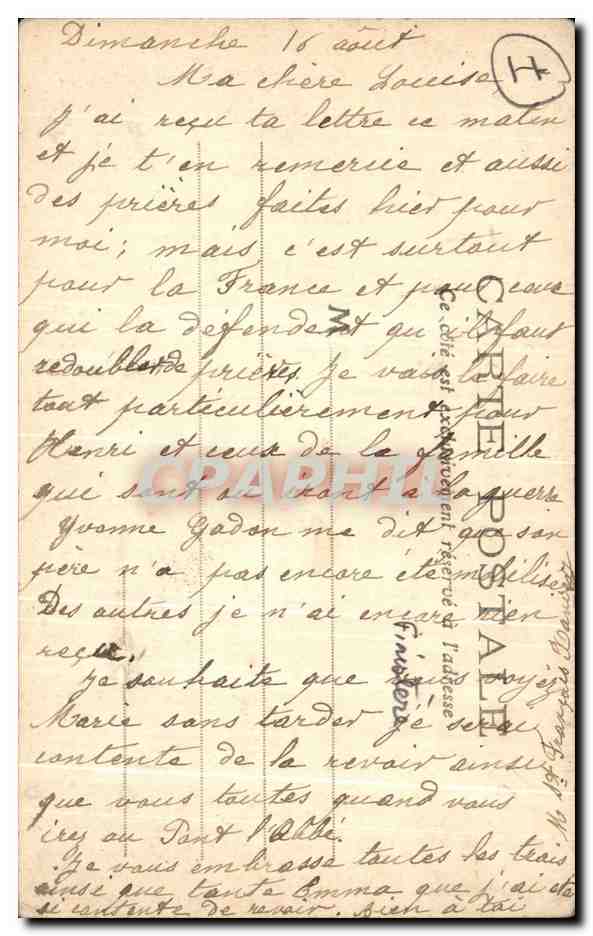 Dimanche 16 août
I
Ma chère Louise,
J'ai reçu ta lettre ce matin
et je t'en remercie et aussi
des prières faites hier pour
moi ; mais c'est surtout
pour la France et pour ceux
qui la défendent qu'il faut
redoubler de prières. Je vais le faire
tout particulièrement pour
Henri et ceux de la famille
qui sont ou iront à la guerre
Yvonne Gadon me dit que son
père n'a pas encore été mobilisé
Des autres je n'ai encore rien
reçu.
Je souhaite que vous voyez
Marie sans tarder je serai
contente de la revoir ainsi
que vous toutes quand vous
irez au Pont l'Abbé.
Je vous embrasse toutes les trois
ainsi que tante Emma que j'ai été
si contente de revoir. Bien à toi
M. St. François Xavier
CARTE POSTALE
Ce côté est exclusivement réservé à l'adresse
M
Finistère
CPAPHIL